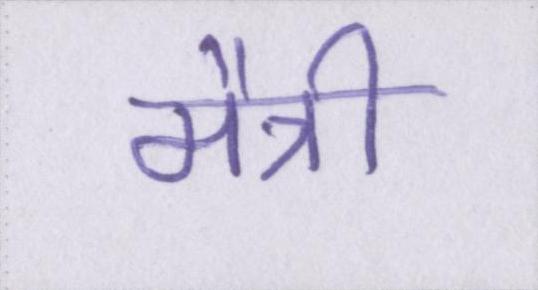 मैत्री